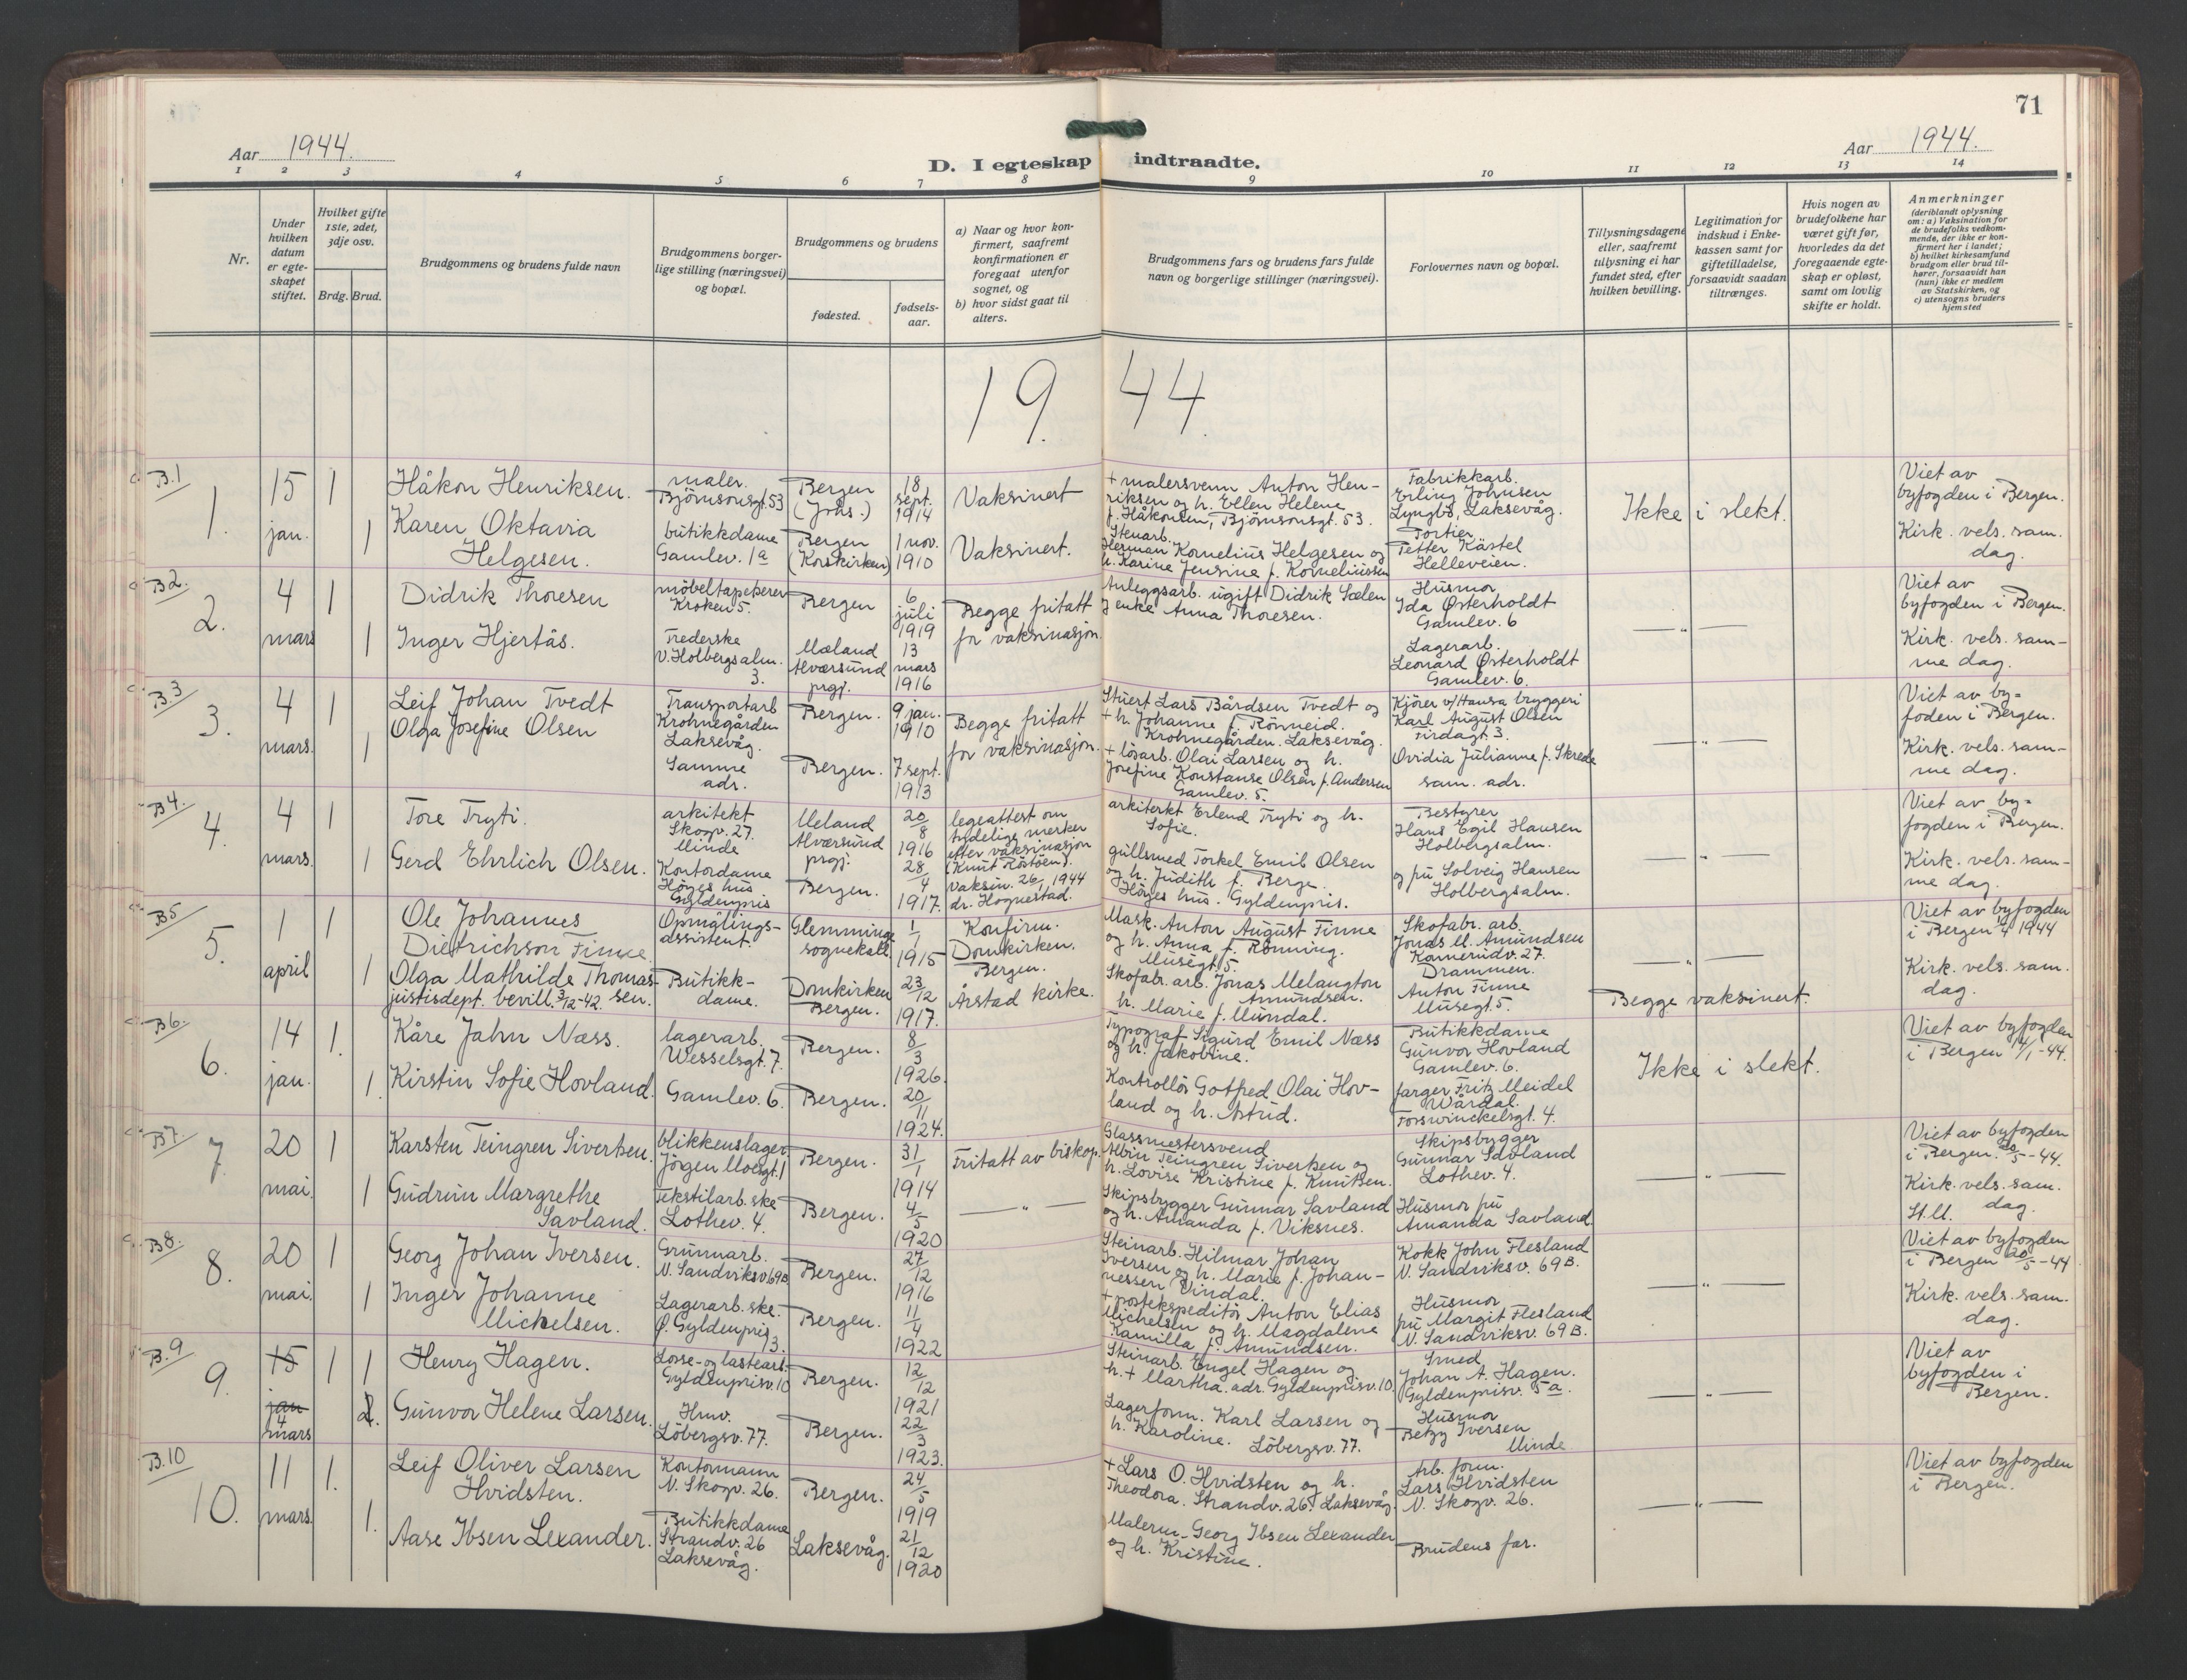 71
Aar 1944.
D. I egteskap indtraadte.
Aar 1944.
1 2 3 4 5 6 7 8 9 10 11 12 13 14
Nr.
Under hvilken datum er egte-skapet stiftet.
Hvilket gifte 1ste, 2det, 3dje osv.
Brdg. Brud.
Brudgommens og brudens fulde navn
Brudgommens borger-lige stilling (næringsvei) og bopæl.
Brudgommens og brudens
fødested.
fødsels-aar.
a) Naar og hvor kon-firmert, saafremt konfirmationen er foregaat utenfor sognet, og
b) hvor sidst gaat til alters.
Brudgommens fars og brudens fars fulde navn og borgerlige stillinger (næringsvei).
Forlovernes navn og bopæl.
Tillysningsdagene eller, saafremt tillysning ei har fundet sted, efter hvilken bevilling.
Legitimation for indskud i Enke-kassen samt for giftetilladelse, forsaavidt saadan tiltrænges.
Hvis nogen av brudefolkene har været gift før, hvorledes da det foregaaende egte-skap er opløst, samt om lovlig skifte er holdt.
Anmerkninger
(deriblandt oplysning om: a) Vaksination for de brudefolks vedkom-mende, der ikke er kon-firmert her i landet; b) hvilket kirkesamfund brudgom eller brud til-hører, forsaavidt han (hun) ikke er medlem av Statskirken, og c) utensogns bruders hjemsted
1944.
B.1
1. 15 jan. 1 1
Håkon Henriksen.
maler. Bjørnsonsgt. 53
Bergen (Johs.)
18 sept. 1914
Vaksinert
+ malersvenn Anton Hen-
riksen og h. Ellen Helene
f. Håkonsen, Bjørnsonsgt. 53.
Fabrikkarb.
Erling Johnsen
Lyngbö, Laksevåg.
Ikke i slekt.
Viet av
byfogden i Bergen.
Karen Oktavia
Helgesen.
butikkdame
Gamlev. 1a
Bergen
(Korskirken)
1 nov.
1910
Vaksinert.
Stenarb.
Herman Kornelius Helgesen og
h. Karine Jensine f. Korneliussen
Portier
Petter Kästel
Helleveien.
Kirk. vels. sam.
dag.
B2
2. 4 mars 1 1
Didrik Thoresen
möbeltapetserer
Kroken 5.
Bergen
6
juli
1919
Begge fritatt
for vaksinasjon.
Anleggsarb. ugift Didrik Sælen
og enke Anna Thoresen.
Husmor
Ida Østerholdt
Gamlev. 6
— " —
Viet av
byfogden i Bergen.
Inger Hjertås.
Frederske
V. Holbergsalm.
3.
Mæland
Alversund
prgj.
13
mars
1916
Lagerarb.
Leonard Østerholdt
Gamlev. 6.
Kirk. vels. sam-
me dag.
B.3
3. 4 mars. 1 1
Leif Johan Tvedt
Transportarb
Krohnegården
Laksevåg.
Bergen.
9 jan.
1910
Begge fritatt
for vaksinasjon.
Stuert Lars Bårdsen Tvedt og
+ h. Johanne f. Rönneid.
Krohnegården. Laksevåg.
Kjörer v/Hansa bryggeri
Karl August Olsen
Firdagt. 3.
— " —
Viet av by=
foden i Bergen.
Olga Josefine Olsen
Samme
adr.
Bergen.
7 sept.
1913
+ lösarb. Olai Larsen og h.
Josefine Konstanse Olsen f. Andersen
Gamlev. 5.
Ovidia Julianne f. Skrede
sam. adr.
Kirk. vels. sam-
me dag.
B4.
4. 4 mars. 1 1
Tore Tryti.
arkitekt
Skogv. 27.
Minde
Meland
Alversund
prgj.
20/8
1916
legeattest om
tydelige merker
efter vaksinasjon
(Knut Röstöen).
arkitekt Erlend Tryti og h.
Sofie.
Bestyrer
Hans Egil Hansen
Holbergsalm.
— " —
Viet av by=
fogden i Bergen.
Gerd Ehrlich Olsen.
Kontordame
Höyes hus
Gyldenpris
Bergen.
28/4
1917.
Vaksin. 26/1 1944
dr. Hognestad.
gullsmed Torkel Emil Olsen
og h. Judith f. Berge.
Höyes hus. Gyldenpris.
og fru Solveig Hansen
Holbergsalm.
Kirk. vels. sam-
me dag.
B5
5. 1 april 1 1
Ole Johannes
Dietrichson Finne.
Opmålings-
assistent.
Glemminge
sognekall
1/1
1915
Konfirm.
Domkirken.
Bergen.
Mask. Anton August Finne
og h. Anna f. Rönning.
Musegt. 5.
Skofabr. arb.
Jonas M. Amundsen
Kornerudv. 27.
Drammen.
— " —
Viet av byfogden
i Bergen 1/4 1944
Olga Mathilde Thomas-
justisdept. bevill. 3/12-42. sen.
Butikk-
dame.
Domkirken
Bergen.
23/12
1917.
Årstad kirke.
Skofabr. arb. Jonas Melangton
Amundsen.
h. Marie f. Mundal.
Anton Finne
Musegt. 5.
Begge vaksinert.
Kirk. vels. sam.
dag.
B6.
6. 14 jan. 1. 1.
Kåre Jahn Næss.
lagerarb.
Wesselsgt. 7.
Bergen.
8/3
1926.
Typograf Sigurd Emil Næss
og h. Jakobine.
Butikkdame
Gunvor Hovland
Gamlev. 6.
Ikke i slekt.
Viet av byfogden
i Bergen 14/1-44.
Kirstin Sofie Hovland.
Gamlev. 6.
Bergen.
20/11
1924.
Kontrollör Gotfred Olai Hov-
land og h. Astrid.
farger Fritz Meidel
Wårdal.
Forswinckelsgt. 4.
B7.
7. 20 mai. 1 1
Karsten Teingren Sivertsen.
blikkenslager
Jörgen Moesgt. 1
Bergen.
31/1
1914
Fritatt av biskop.
Glassmestersvend
Albin Teingren Sivertsen og
h. Lovise Kristine f. Knutsen.
Skipsbygger
Gunnar Savland
Lothev. 4.
— " —
Viet av byfogden
i Bergen. 20/5-44.
Gudrun Margrethe
Savland.
Tekstilarb. ske
Lothev. 4.
Bergen.
4/5
1920
— " —
Skipsbygger Gunnar Savland
og h. Amanda f. Viksnes.
Husmor fru
Amanda Savland.
Kirk. vels. sam.
St.M. dag.
B8.
8. 20 mai. 1 1
Georg Johan Iversen.
Grunnarb.
N. Sandviksv 69B.
Bergen.
27/12
1916
Steinarb. Hilmar Johan
Iversen og h. Marie f. Johan-
nessen Vindal.
Kokk John Flesland
N. Sandviksv. 69B.
— " —
Viet av byfogden
i Bergen 20/5-44
Inger Johanne
Michelsen.
Lagerarb. ske.
Ø. Gyldenpris
13.
Bergen.
11/4
1922
+ postekspeditör Anton Elias
Michelsen og h. Magdalene
Kamilla f. Amundsen.
Husmor
fru Margit Flesland
N. Sandviksv. 69B.
Kirk. vels. sam.
dag.
B.9
9. 15 jan 4 mars 1 1 2.
Henry Hagen.
Losse- og lastearb.
Gyldenprisv. 10
Bergen.
12/12
1921
Steinarb. Engel Hagen og
h. + Martha. adr. Gyldenprisv. 10.
Smed
Johan A. Hagen.
Gyldenprisv. 5a.
— " —
Viet av
byfogden i
Bergen.
Gunvor Helene Larsen.
Hmv.
Löbergsv. 77.
Bergen.
22/3
1923.
Lagerform. Karl Larsen og
h. Karoline. Löbergsv. 77.
Husmor
Betzy Iversen
Minde
B.10
10. 11 mars. 1. 1.
Leif Oliver Larsen
Hvidsten.
Kontormann
N. Skogv. 26.
Bergen.
24/5
1919
+ Lars O. Hvidsten og h.
Theodora. Strandv. 26. Laksevåg.
Arb. form.
Lars Hvidsten
N. Skogv. 26.
— " —
Viet av byfogden
i Bergen.
Aase Ibsen Lexander.
Butikkdame
Strandv. 26
Laksevåg.
Laksevåg.
21/12
1920
Malerm. Georg Ibsen Lexander
og h. Kristine.
Brudens far.